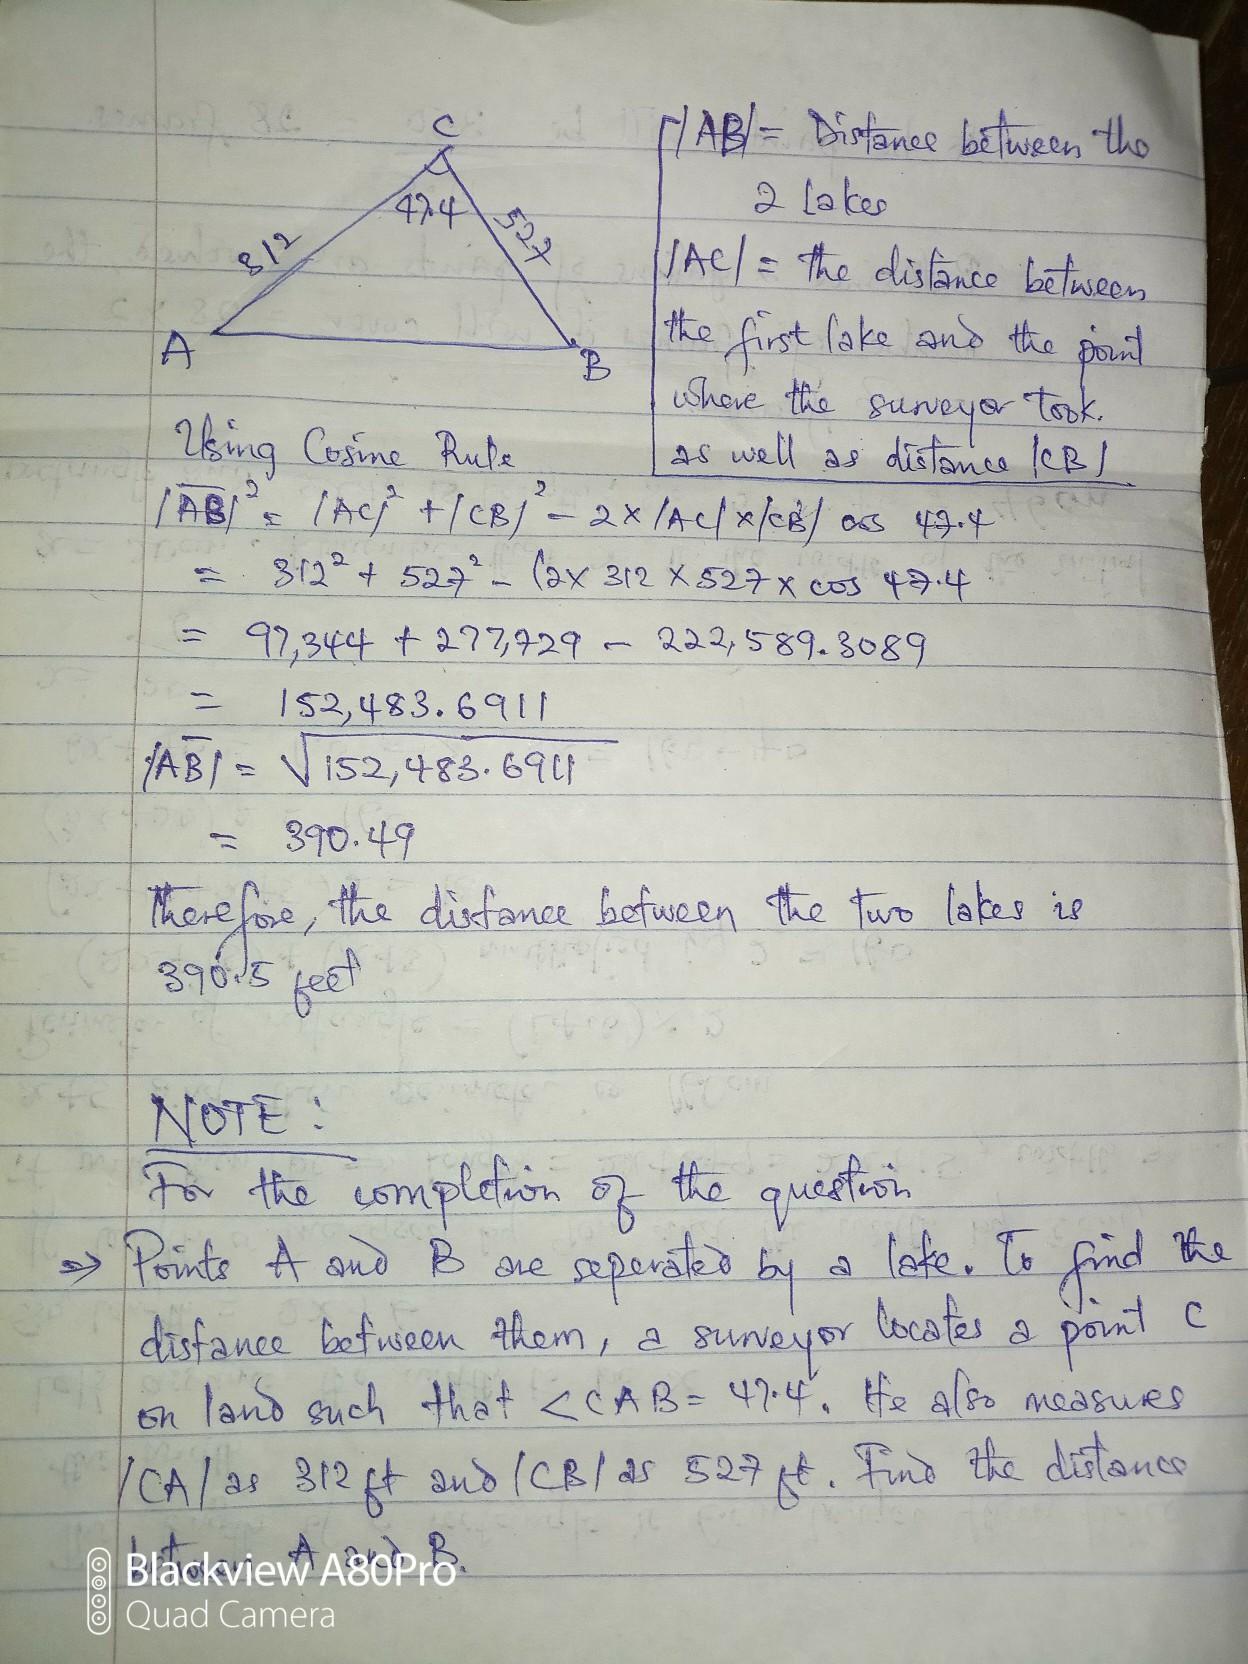 C
47.4
312
527
A
B
|AB| = Distance between the
2 lakes
|AC| = the distance between
the first lake and the point
where the surveyor took.
as well as distance |CB|
Using Cosine Rule
|AB|² = |AC|² + |CB|² - 2 x |AC| x |CB| cos 47.4
= 312² + 527² - (2 x 312 x 527 x cos 47.4
= 97,344 + 277,729 - 222,589.3089
= 152,483.6911
|AB| = √152,483.6911
= 390.49
Therefore, the distance between the two lakes is
390.5 feet
NOTE:
For the completion of the question
⇒ Points A and B are seperated by a lake. To find the
distance between them, a surveyor locates a point C
on land such that <CAB = 47.4. He also measures
|CA| as 312 ft and |CB| as 527 ft. Find the distance
between A and B.
Blackview A80Pro
Quad Camera